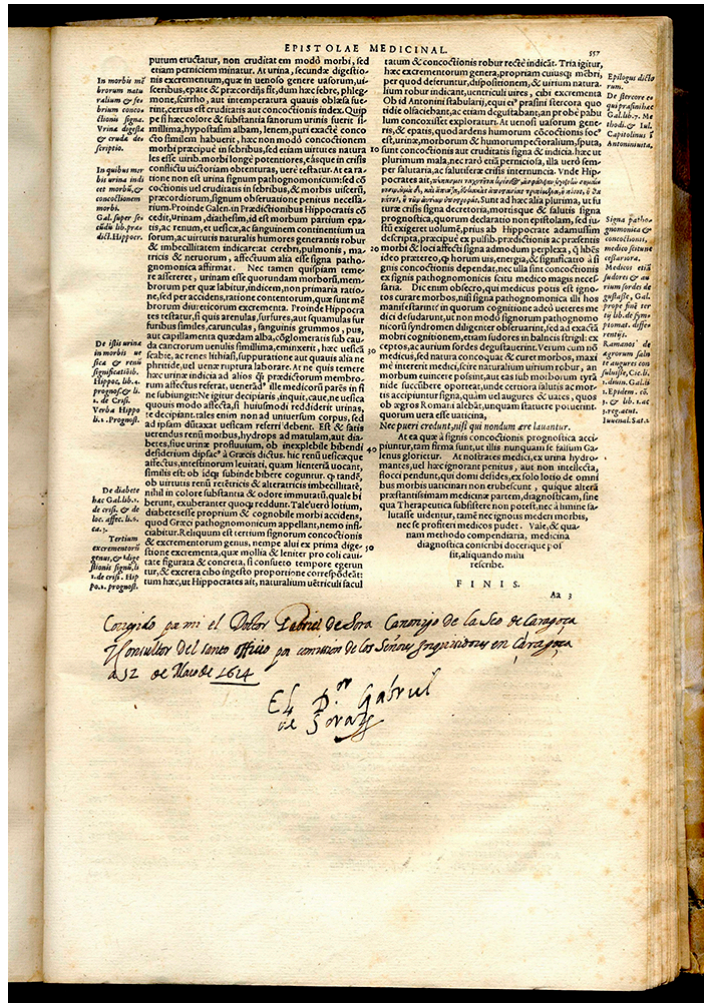 EPISTOLAE MEDICINAL.
557
putum eructatur, non cruditatem modò morbi, sed
etiam perniciem minatur. At urina, secundæ digestio-
nis excrementum, quæ in uenoso genere uniuerso, ui-
sceribus, epate & præcordijs fit, dum hæc febre, phleg-
mone, scirrho, aut intemperatura quauis oblæsa fue-
rint, certus est cruditatis aut concoctionis index. Quip
pe si hæc colore & substantia sanorum urinis fuerit si-
millima, hypostasim albam, lenem, puri exactè conco
cto similem habuerit, hæc non modò concoctionem
morbi præcipuè in febribus, sed etiam uirtutes natura
les esse uirib. morbi longè potentiores, easque in crisis
conflictu uictoriam obtenturas, uerè testatur. At ea ra-
tione non est urina signum pathognomonicum: sed cō
coctionis uel cruditatis in febribus, & morbis uiscerū,
præcordiorum, signum obseruatione penitus necessa-
rium. Proinde Galen. in Prædictionibus Hippocratis cō
cedit, urinam, diathesim, id est morbum partium epa-
tis, ac renum, et uesicæ, ac sanguinem continentium ua
sorum, ac uirtutis naturalis humores generantis robur
& imbecillitatem indicare: at cerebri, pulmonis, ma-
tricis & neruorum, affectuum alia esse signa patho-
gnomonica affirmat. Nec tamen quispiam teme-
re assereret, urinam esse quorundam morborū, mem-
brorum per quæ labitur, indicem, non primaria ratio-
ne, sed per accidens, ratione contentorum, quæ sunt mē
brorum diu ureticorum excrementum. Proinde Hippocra
tes testatur, si quis arenulas, surfures, aut squamulas sur
furibus similes, carunculas, sanguinis grummos, pus,
aut capillamenta quædam alba, cōglomeratis sub cau-
da canorum uenulis simillima, eminxerit, hæc uesicæ
scabie, ac renes lithiasi, suppuratione aut quauis alia ne
phritide, uel uenæ ruptura laborare. At ne quis temere
hæc urinæ indicia ad alios q̄; prædictorum membro-
rum affectus referat, uenerād° ille medicorū parēs in fi
ne subiungit: Ne igitur decipiaris, inquit, caue, ne uesica
quouis modo affecta, si huiusmodi reddiderit urinas,
te decipiant: tales enim non ad uniuersum corpus, sed
ad ipsam dūtaxat uesicam referri debent. Est & satis
terendus renū morbus, hydrops ad matulam, aut dia-
betes, siue urinæ profluuium, ob inexplebile bibendi
desiderium dipsac° à Græcis dictus. hic renū uesicæque
affectus, intestinorum leuitati, quam lienteriā uocant,
similis est: ob idq; subinde bibere cogūtur. q̄ tandē,
ob uirtutis renū retētricis & alteratricis imbecillitatē,
nihil in colore substantia & odore immutatū, quale bi
berunt, exuberanter quoq; reddunt. Tale uerò lotium,
diabetes esse proprium & cognobile morbi accidens,
quod Græci pathognomonicum appellant, nemo infi-
ciabitur. Reliquum est tertium signorum concoctionis
& excrementorum genus, nempe alui ex prima dige-
stione excrementa, quæ mollia & leniter pro oli caui-
tate figurata & concreta, si consueto tempore egerun
tur, & excreta cibo ingesto proportione correspōdeāt:
tum hæc, ut Hippocrates ait, naturalium uētriculi facul
In morbis mē
brorum natu
ralium & fe-
brium conco-
ctionis signa.
Vrina digesta
& cruda de-
scriptio.
In quibus mor
bis urina indi
cet morbū, &
concoctionem
morbi.
Gal. super se-
cūdū lib. præ-
dict. Hippocr.
De istis urinis
in morbis ue
sicæ & renū
significatiōib.
Hippoc. lib. 4.
prognos. & li.
1. de Crisi.
Verba Hippo
li. 2. Prognost.
De diabete
hac Gal. lib. 1.
de crisi. & de
loc. affec. li. 6.
ca. 3.
Tertium
excrementorū
genus, & dige
stionis signū, li
1. de crisi. Hip
po. 2. prognost.
10
20
30
40
50
tatum & concoctionis robur rectè indicāt. Tria igitur,
hæc excrementorum genera, propriam cuiusq; mēbri,
per quod deferuntur, dispositionem, & uirium natura-
lium robur indicant, uentriculi uires, cibi excrementa
Ob id Antonini stabularij, equi ei° prasini stercora quo
tidie olfaciebant, ac etiam degustabant, an probè pabu
lum concoxisset exploraturi. At uenosi uasorum gene-
ris, & epatis, quod ardens humorum cōcoctionis foc°
est, urinæ, morborum & humorum pectoralium, sputa,
sunt concoctionis aut cruditatis signa & indicia, hæc ut
plurimum mala, nec rarò etiā perniciosa, illa uerò sem-
per salutaria, ac salutiferæ crisis internuncia. Vnde Hip-
pocrates ait,
Sunt ad hæc alia plurima, ut fu
turæ crisis signa decretoria, mortisque & salutis signa
prognostica, quorum declaratio non epistolam, sed iu-
stū exigeret uolumē, prius ab Hippocrate adamussim
descripta, præcipuè ex pulsib. prædictionis ac præsentis
morbi & loci affecti signa admodum perplexa, q̄ hîc
ideo prætereo, q̄ horum uis, energia, & significatio à si
gnis concoctionis dependat, nec ulla sint concoctionis
ex signis pathognomonicis scitu medico magis neces-
saria. Dic enim obsecro, qui medicus potis est igno-
tos curare morbos, nisi signa pathognomonica illi hos
manifestarint? in quorum cognitione adeò ueteres me
dici desudarunt, ut non modò signorum pathognomo-
nicorū syndromen diligenter obseruarint, sed ad exactā
morbi cognitionem, etiam sudores in balneis strigil: ex
ceptos, ac aurium sordes degustauerint. Verum cum nō
medicus, sed natura concoquat & curet morbos, maxi
mè interest medici, scire naturalium uirium robur, an
morbum euincere possint, aut eas sub morborum tyrā
nide succūbere oporteat, unde certiora salutis ac mor-
tis accipiuntur signa, quàm uel augures & uates, quos
ob ægros Romani alebāt, unquam statuere potuerint.
quorum uera esse uaticina,
Nec pueri credunt, nisi qui nondum ære lauantur.
At ea quæ à signis concoctionis prognostica acci-
piuntur, tam firma sunt, ut illis nunquam se falli Ga-
lenus glorietur. At nostrates medici, ex urina hydro-
mantes, uel hæc ignorant penitus, aut non intellecta,
flocci pendunt, qui domi desides, ex solo lotio de omni
bus morbis uaticinari non erubescunt, quique alterā
præstantissimam medicinæ partem, diagnosticam, sine
qua Therapeutica subsistere non potest, nec à limine sa-
lutasse uidentur, tamē nec ignotis mederi morbis,
nec se profiteri medicos pudet. Vale, & qua-
nam methodo compendiaria, medicina
diagnostica conscribi docerique pos
sit, aliquando mihi
rescribe.
FINIS.
Aa 3
Epilogus dicto
rum.
De stercore e-
qui prasini hæc
Gal. lib. 7. Me
thodi. & Iul.
Capitolinus ī
Antonini uita,
Signa patho-
gnomonica &
concoctionis,
medico scitu ne
cessaria.
Medicos etiā
sudores & au
rium sordes de
gustasse, Gal.
prope finē ter
tij lib. de sym-
ptomat. diffe-
rentijs.
Romanos de
ægrorum salu
te augures con
suluisse, Cic. li.
1. diuin. Gal. li
1. Epidem. cō.
1. & lib. 1. ac
3. reg. acut.
Iuuenal. Sat. 2.
Corregido por mi el Doctor Gabriel de Sora Canonigo de la Seo de Çaragoça
Y Consultor del santo officio por comission de los Señores Inquisidores en Çaragoça
a 12 de Março de 1614
El D.or Gabriel
de Sora